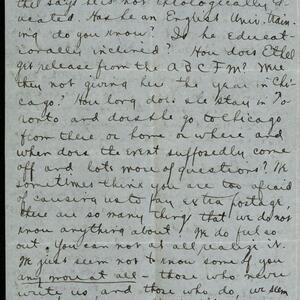 says he is not theologically
Has he an English Univ. train-
ing do you know? Is he Educat-
ionally inclined? How does Ethel
get release from the A B C F M? Are
they not giving her the year in Chi-
cago? How long does she stay in To-
ronto and does she go to Chicago
from there or home or where and
when does the event supposedly come
off and lots more of questions? We
sometimes think you are too afraid
of causing us to pay extra postage,
there are so many things that we do not
know anything about. We do ful so
out. You can not at all realize it.
We just seem not to know some of you
any more at all - those who never
write us, and those who do, we seem